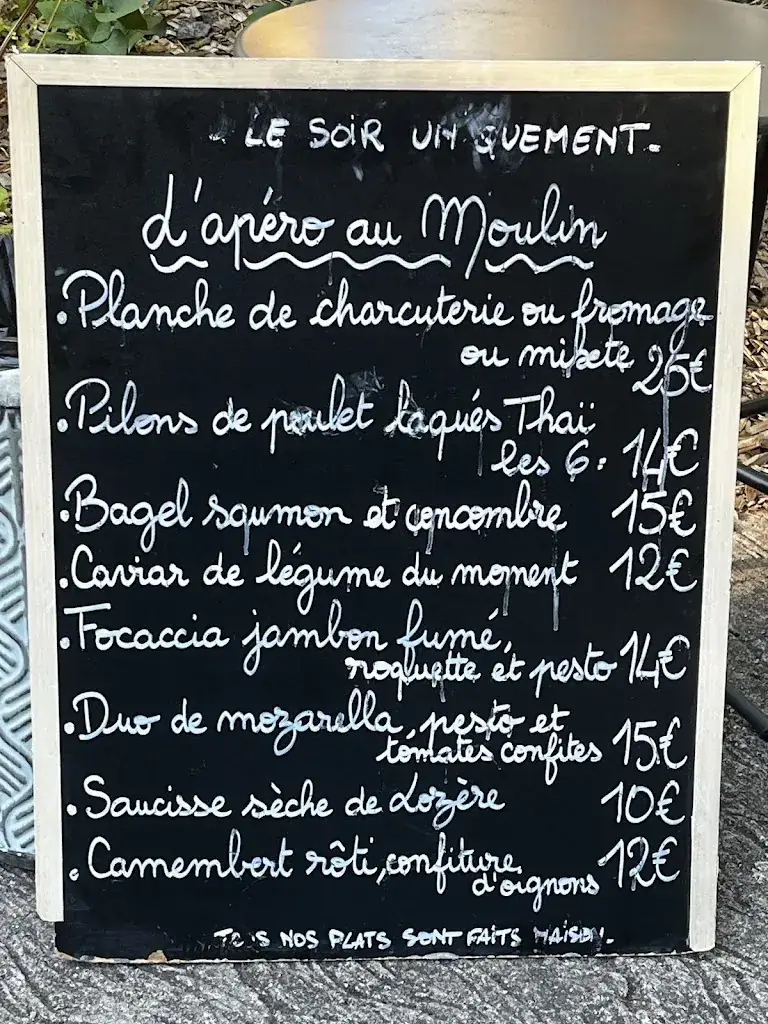 LE SOIR UNIQUEMENT.
d'apéro au Moulin
. Planche de charcuterie ou fromage
ou mixte 25€
. Pilons de poulet laqués Thaï
les 6. 14€
. Bagel saumon et concombre 15€
. Caviar de légume du moment 12€
. Focaccia jambon fumé,
roquette et pesto 14€
. Duo de mozarella, pesto et
tomates confites 15€
. Saucisse sèche de Lozère 10€
. Camembert rôti, confiture
d'oignons 12€
TOUS NOS PLATS SONT FAITS MAISON.